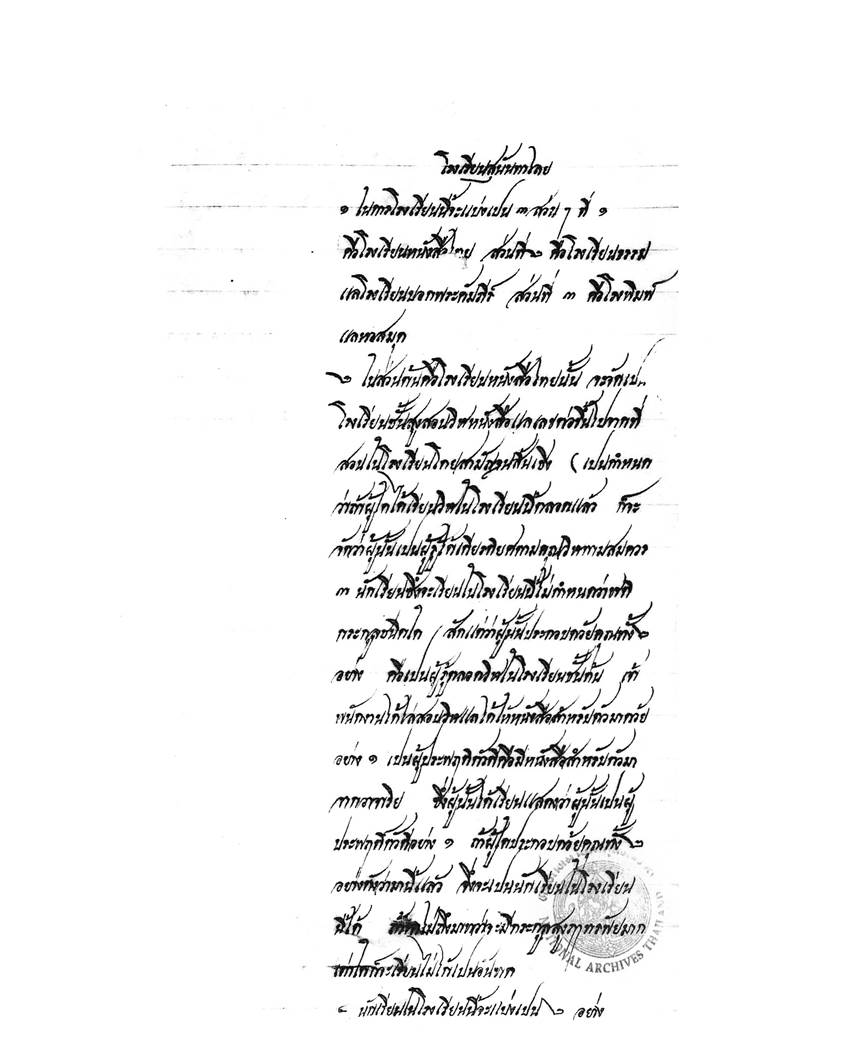 โรงเรียนสุนันทาไลย
๑ ในการโรงเรียนนี้จะแบ่งเปน ๓ ส่วน ๆ ที่ ๑
คือโรงเรียนหนังสือไทย ส่วนที่ ๒ คือโรงเรียนธรรม
แลโรงเรียนบอกพระคัมภีร์ ส่วนที่ ๓ คือโรงพิมพ์
แลหอสมุด
๒ ในส่วนต้นคือโรงเรียนหนังสือไทยนั้น จะจัดเปน
โรงเรียนชั้นสูงสอนวิชาหนังสือแลเลขต่อขึ้นไปจากที่
สอนในโรงเรียนไทยสามัญจนสิ้นเชิง เปนกำหนด
ว่าถ้าผู้ใดได้เรียนวิชาในโรงเรียนนี้ตลอดแล้ว ก็จะ
จัดว่าผู้นั้นเปนผู้รู้ได้เกียรติยศตามคุณวิชาตามสมควร
๓ นักเรียนซึ่งจะเรียนในโรงเรียนนี้ไม่กำหนดว่าชาติ
ตระกูลชนิดใด สักแต่ว่าผู้นั้นประกอบด้วยคุณทั้ง ๒
อย่าง คือเปนผู้รู้ตลอดวิชาในโรงเรียนชั้นต้น เจ้า
พนักงานได้ไล่สอบวิชาแลได้ให้หนังสือสำหรับตัวมาด้วย
อย่าง ๑ เปนผู้ประพฤติตัวดีคือมีหนังสือสำหรับตัวมา
จากอาจารีย ซึ่งผู้นั้นได้เรียนแสดงว่าผู้นั้นเปนผู้
ประพฤติตัวดีอย่าง ๑ ถ้าผู้ใดประกอบด้วยคุณทั้ง ๒
อย่างดังว่ามานี้แล้ว จึ่งจะเปนนักเรียนในโรงเรียน
นี้ได้ ถ้าไม่ถึงมาทว่าจะมีตระกูลสูงฤาทรัพย์มาก
เท่าใดก็จะเรียนไม่ได้เปนอันขาด
๔ นักเรียนในโรงเรียนนี้จะแบ่งเปน ๒ อย่าง
NATIONAL ARCHIVES THAILAND